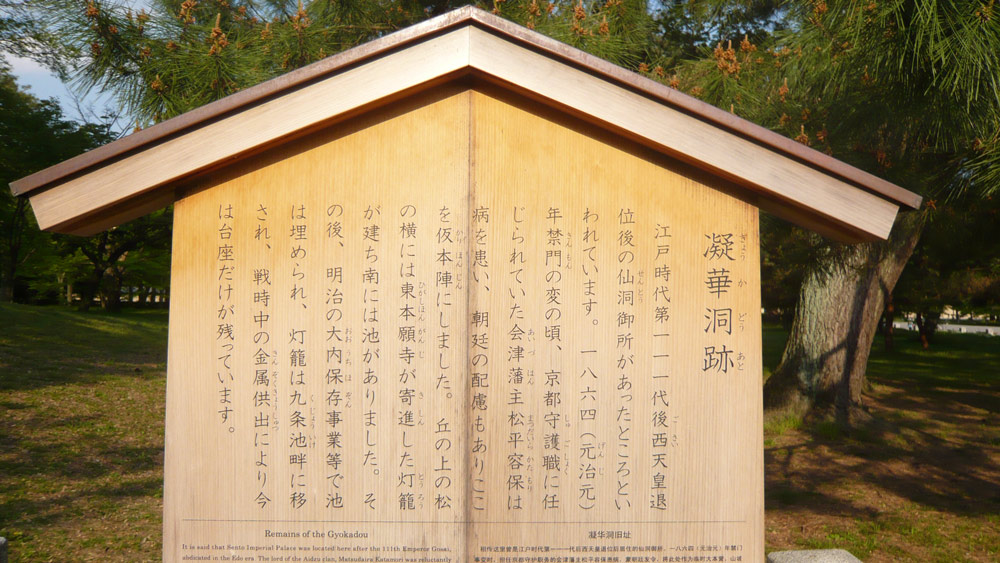 凝華洞跡
江戸時代第一一一代後西天皇退
位後の仙洞御所があったところとい
われています。一八六四（元治元）
年禁門の変の頃、京都守護職に任
じられていた会津藩主松平容保は
病を患い、朝廷の配慮もありここ
を仮本陣にしました。丘の上の松
の横には東本願寺が寄進した灯籠
が建ち南には池がありました。そ
の後、明治の大内保存事業等で池
は埋められ、灯籠は九条池畔に移
され、戦時中の金属供出により今
は台座だけが残っています。
Remains of the Gyokadou
It is said that Sento Imperial Palace was located here after the 111th Emperor Gosai,
abdicated in the Edo era. The lord of the Aidzu clan, Matsudaira Katamori was reluctantly
凝华洞旧址
相传这里曾是江户时代第一一一代后西天皇退位后居住的仙洞御所。一八六四（元治元）年禁门